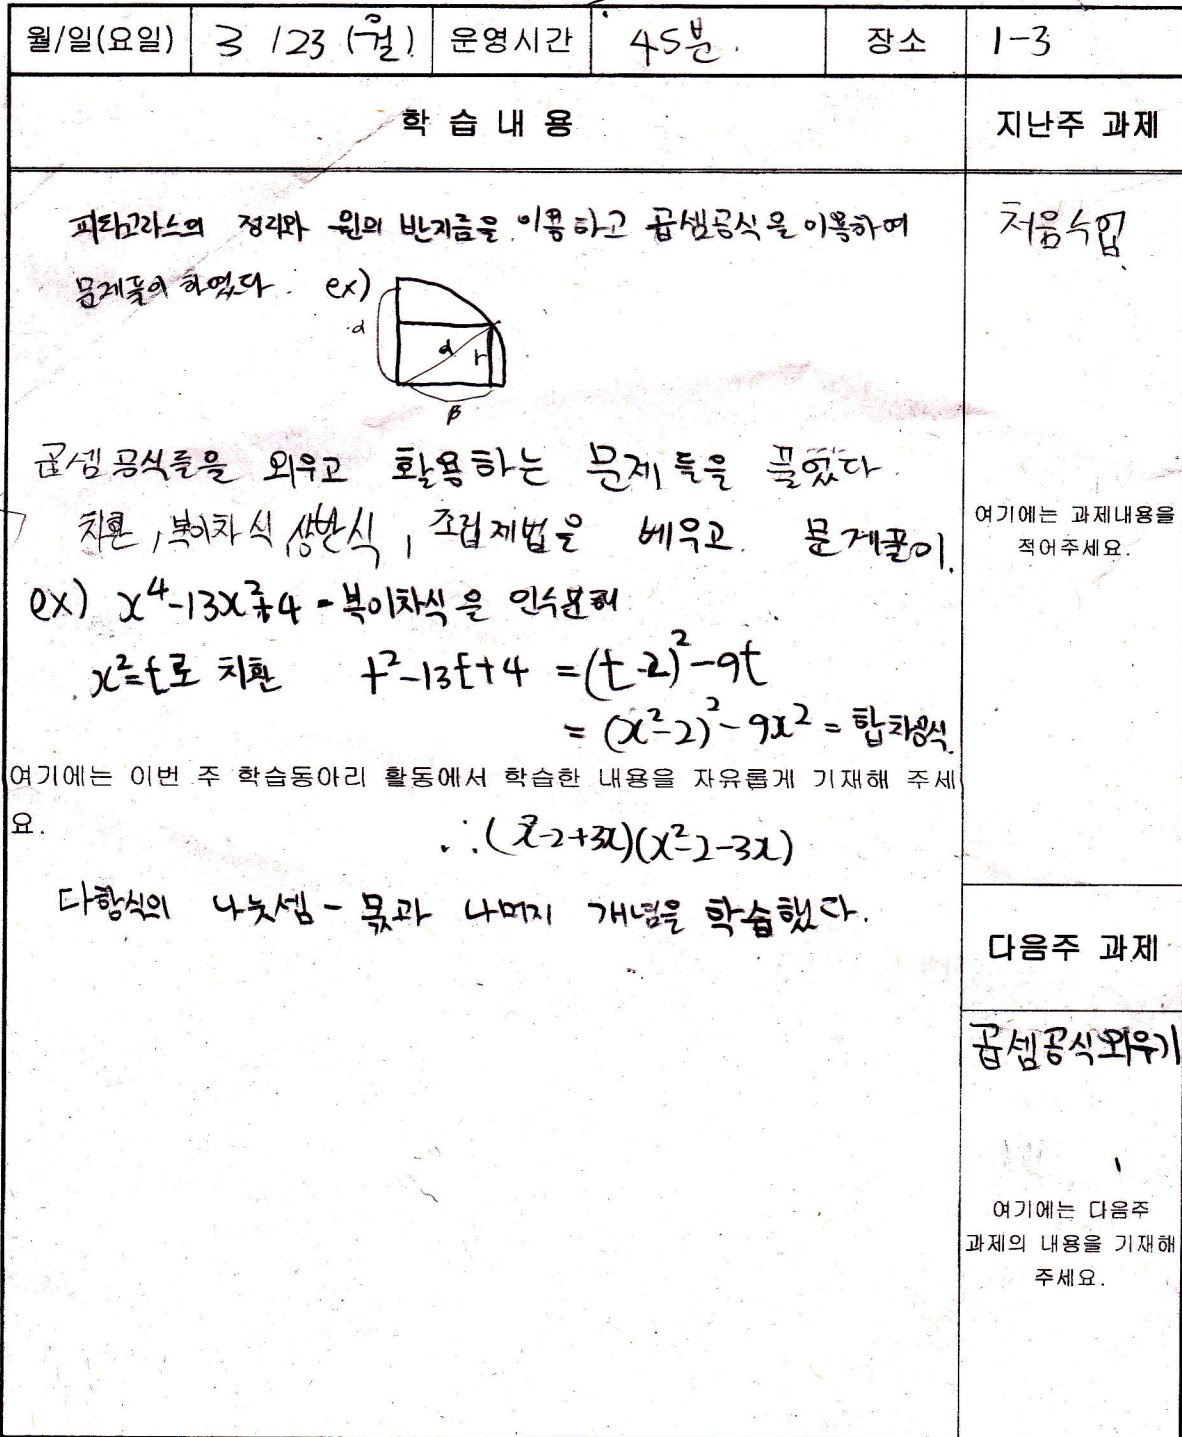 월/일(요일) 3 /23 (월) 운영시간 45분. 장소 1-3
학 습 내 용 지난주 과제
피타고라스의 정리와 원의 반지름을 이용하고 곱셈공식을 이용하여
처음수업
문제풀이 하였다. ex)
α
α r
β
곱셈공식들을 외우고 활용하는 문제들을 풀었다.
치환, 복이차식, 상반식, 조립제법을 베우고 문제풀이.
여기에는 과제내용을
적어주세요.
ex) x⁴-13x²+4 - 복이차식을 인수분해
x²=t로 치환 t²-13t+4 = (t-2)²-9t
= (x²-2)²-9x² = 합차공식.
여기에는 이번 주 학습동아리 활동에서 학습한 내용을 자유롭게 기재해 주세
요.
∴(x²-2+3x)(x²-2-3x)
다항식의 나눗셈 - 몫과 나머지 개념을 학습했다.
다음주 과제
곱셈공식외우기
여기에는 다음주
과제의 내용을 기재해
주세요.